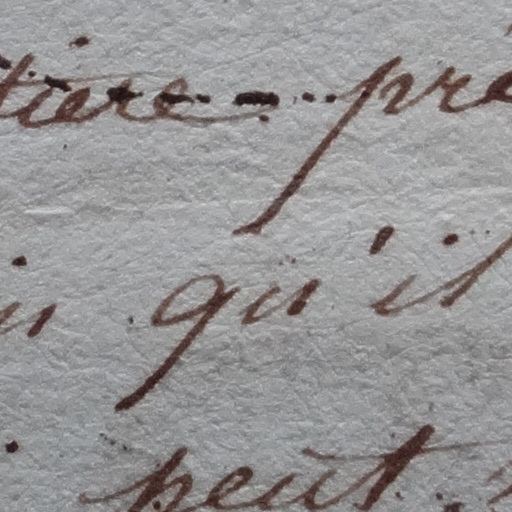 tiere pré
qu'il
peut